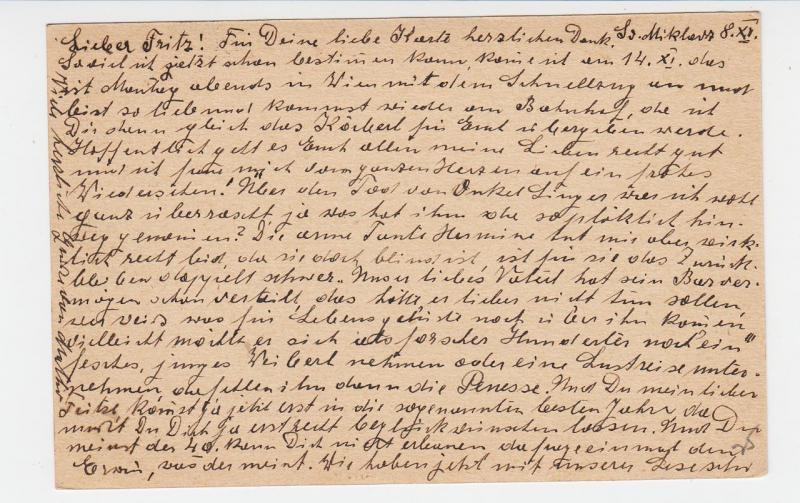 Lieber Fritz! Für Deine liebe Karte herzlichen Dank. Sv. Miklavž 8. XI.
Soviel ich jetzt schon bestimmen kann, komme ich am 14. XI. das
ist Montag abends in Wien mit dem Schnellzug an und
bist so lieb und kommst wieder am Bahnhof, da ich
Dir dann gleich das Körberl für Euch übergeben werde.
Hoffentlich geht es Euch allen meine Lieben recht gut
und ich freue mich vom ganzen Herzen auf ein frohes
Wiedersehen! Über den Tod von Onkel Linger war ich wohl
ganz überrascht, ja was hat ihn so plötzlich hin-
weg genommen? Die arme Tante Hermine tut mir aber wirk-
lich recht leid, da sie doch blind ist, ist für sie das Zurück-
bleiben doppelt schwer. Unser liebes Vaterl hat sein Barver-
mögen schon verteilt, das hätt er lieber nicht tun sollen,
wer weiß was für Lebensgelüste noch über ihn kommen
vielleicht möchte er sich als forscher Hunderter noch ein
fesches, junges Weiberl nehmen oder eine Lustreise unter-
nehmen da fehlen ihm dann die Penesse. Und Du mein lieber
Fritzl kommst ja jetzt erst in die sogenannten besten Jahre, da
muß Du Dich ja erst recht beglückwünschen lassen. Und Du
meinst der 40. kann Dich nicht da frage einmal den
Erwin, was der meint. Wir haben jetzt mit unserer Lese schö
Viele herzliche Grüße von